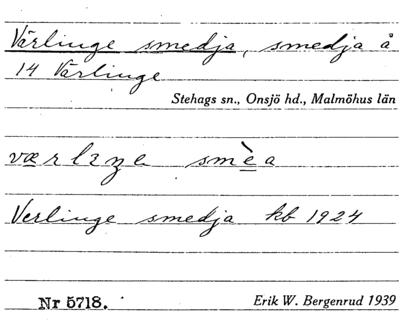 Värlinge smedja, smedja å
14 Värlinge
Stehags sn., Onsjö hd., Malmöhus län
værlɪŋe smèa
Verlinge smedja kb 1924
Nr 5718.
Erik W. Bergenrud 1939